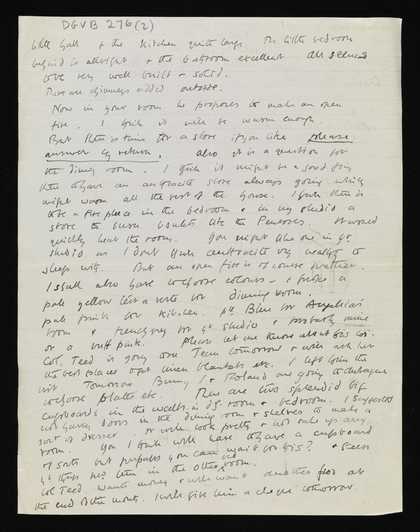 DGVB 276 (2)
little hall & the kitchen quite large. The little bedroom
behind is allright & the bathroom excellent. All seemed
to be very well built & solid.
There are chimneys added outside.
Now in your room he proposes to make an open
fire. I think it will be warm enough
But there is time for a stove if you like please
answer by return, also it is a question for
the dining room. I think it might be a good thing
there to have an anthracite stove always going which
might warm all the rest of the house. I think there is
to be a fire place in the bedroom & in my studio a
stove to burn like the Penroses. It would
quickly heat the room. You might like one in yr
studio as I dont think anthracite very healthy to
sleep with. But an open fire is of course
I shall also have to choose colours - & a
pale yellow for dining room.
pale pink for kitchen. pale Blue for Angelica's
room & for yr studio & probably mine
or a buff pink. Please let me know about this
Col. Teed is going tomorrow & will ask him
the best places to get linen blankets etc. I left him the
list Tomorrow Bunny I & Roland are going to
to choose plates etc. There are two splendid big
cupboards in the walls in d.g. room & bedroom. I suggested
not having doors in the dining room & shelves to make a
sort of dresser. It will look pretty & not take up any
room. You I think will have to have a cupboard
of sorts but perhaps you can wait for this?
yr things in the other room.
Col Teed wants money & will want another at
the end of the month. I will give him a cheque tomorrow